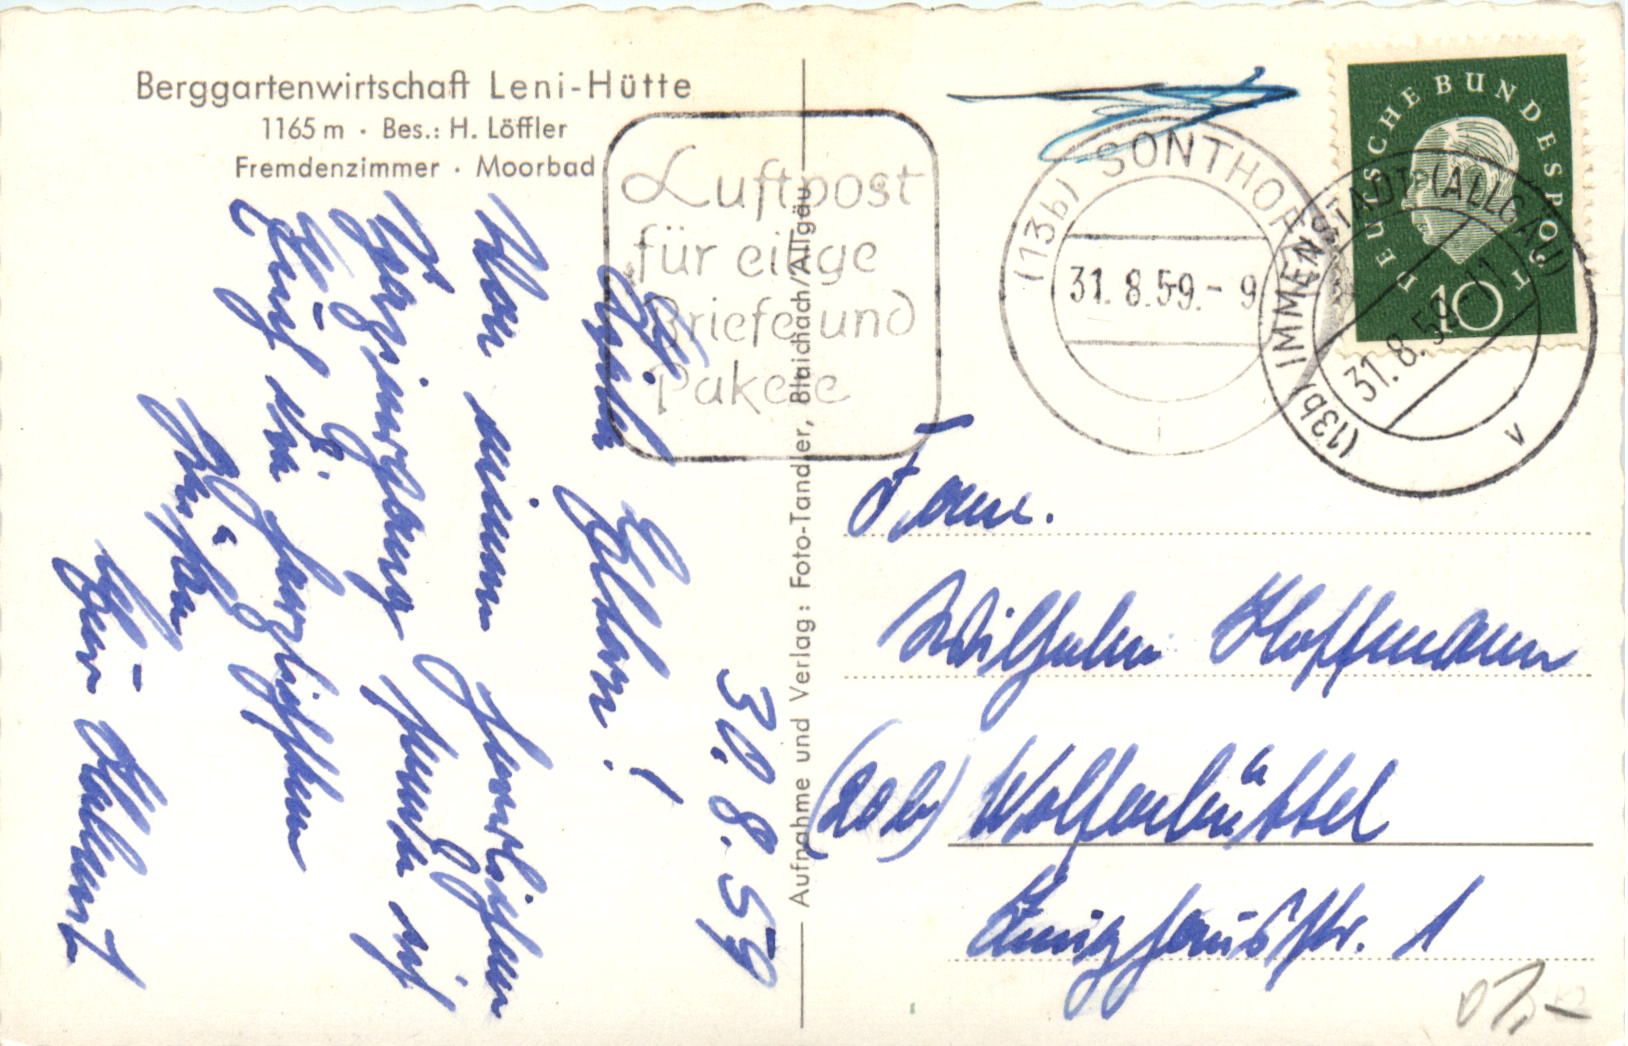 Berggartenwirtschaft Leni-Hütte
1165 m · Bes.: H. Löffler
Fremdenzimmer · Moorbad
Luftpost
für eilige
Briefe und
Pakete
(13b) SONTHOFEN
31.8.59.-9
DEUTSCHE BUNDESPOST
10
(13b) IMMENSTADT (ALLGÄU)
31.8.59-11
v
Aufnahme und Verlag: Foto-Tandler, Blaichach/Allgäu
30. 8. 59
Eltern!
Von meinem
sende ich
Euch die herzlichsten
Grüße
Euer Helmut
Wilhelm Hoffmann
(20b) Wolfenbüttel